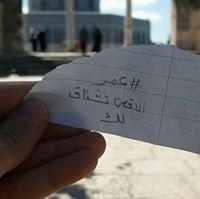 #عمر
الاقصى تشتاق
لك